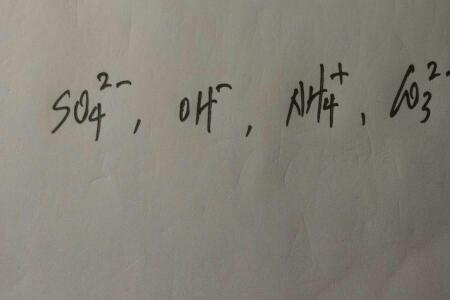 SO₄²⁻, OH⁻, NH₄⁺, CO₃²⁻